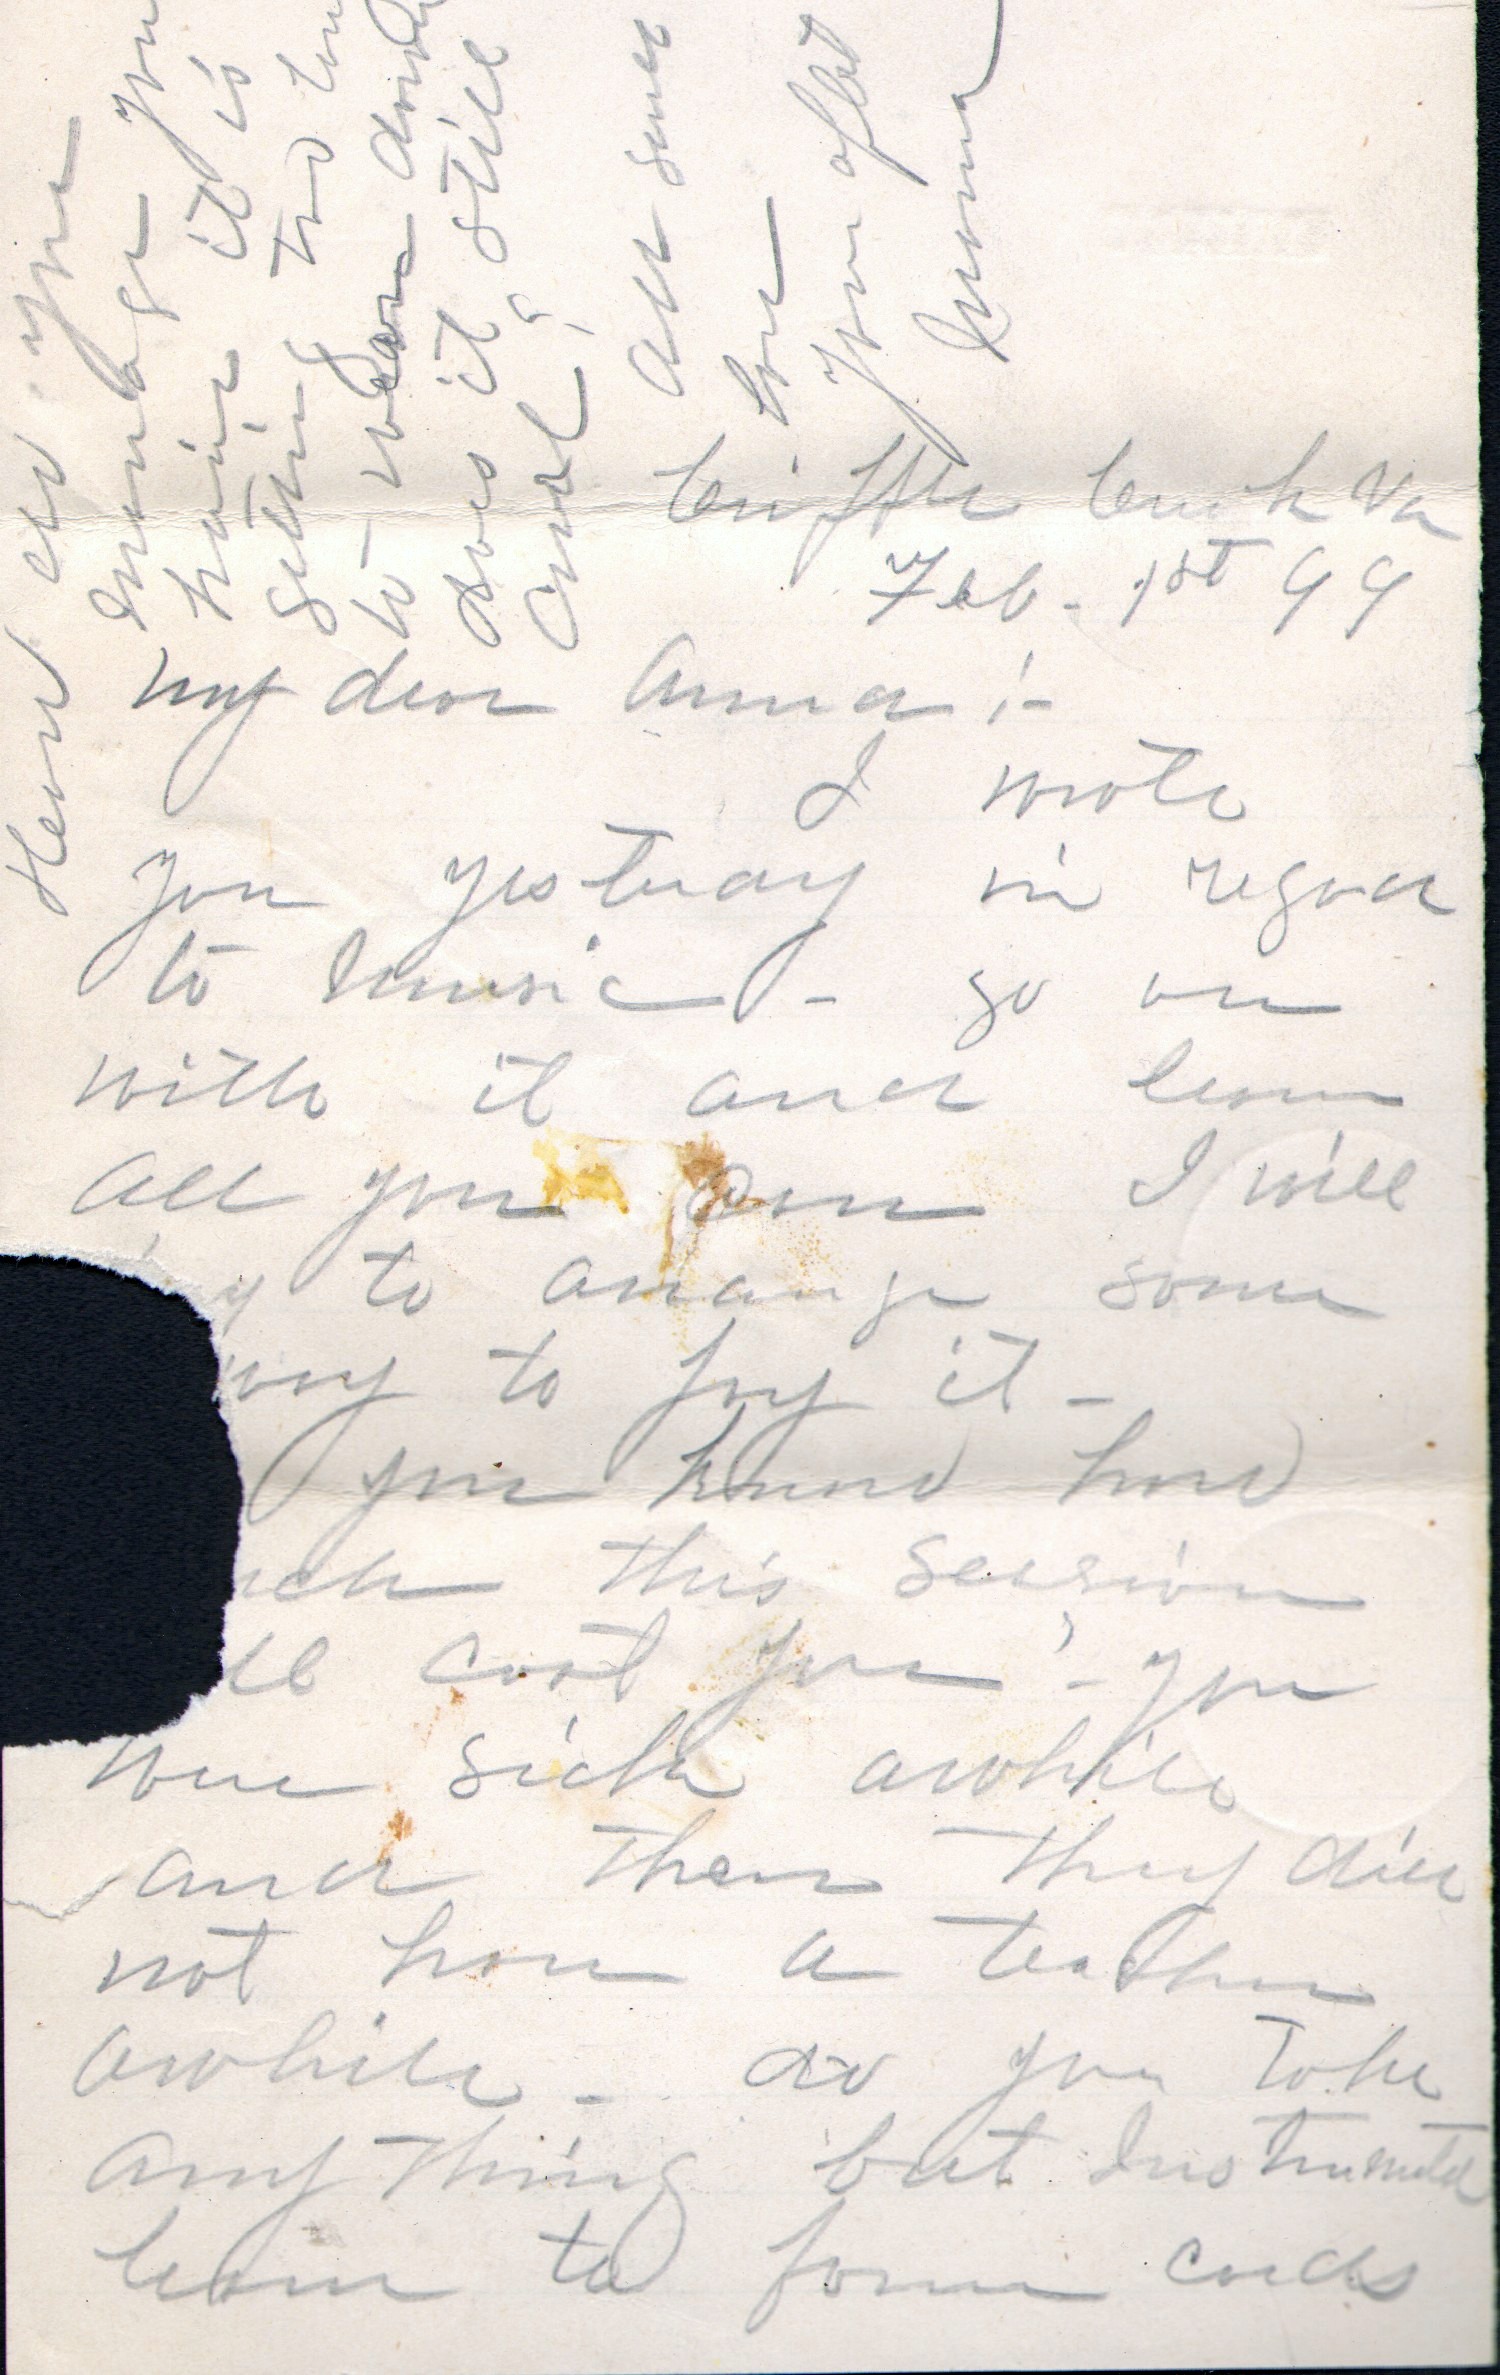 Cripple Creek Va
Feb. 1st 99
My dear Anna :-
I wrote
you yesterday in regard
to Music - go on
with it and learn
all you can I will
y to arrange some
way to pay it -
you know how
uch this session
ll cost you? - you
were sick awhile
and then they did
not have a teacher
awhile - do you take
anything but Instrumental
learn to form cords
How do you
manage your
hair it is
getting too long
to wear down
does it still
curl?
All send
love
Your affct
Momma